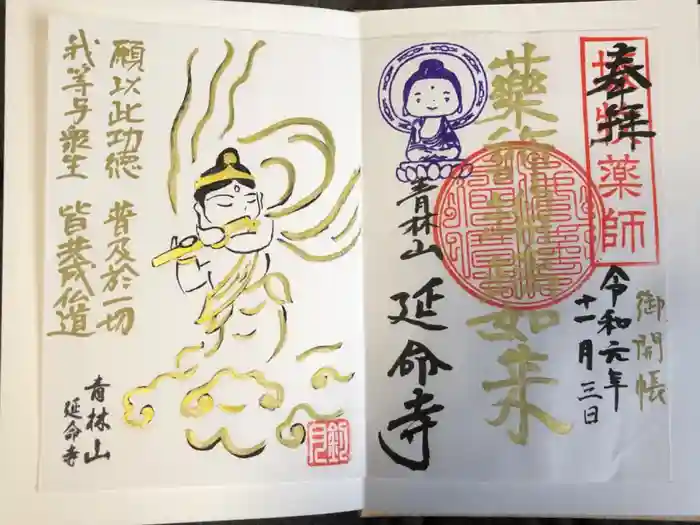 奉拝
薬師
御開帳
令和六年
十一月三日
藥師瑠璃光如来
青林山 延命寺
願以此功徳 普及於一切
我等与衆生 皆共成仏道
青林山
延命寺